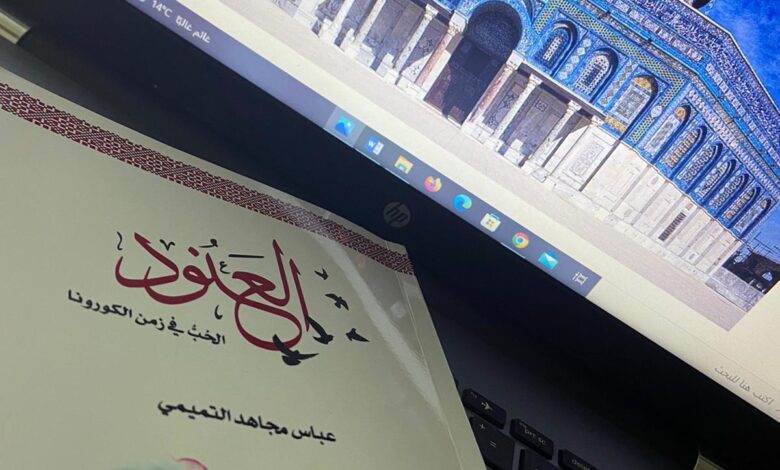 14°C غائم غالبًا
hp
العنود
الحبُّ في زمن الكورونا
عباس مجاهد التميمي
اكتب هنا للبحث
prt sc